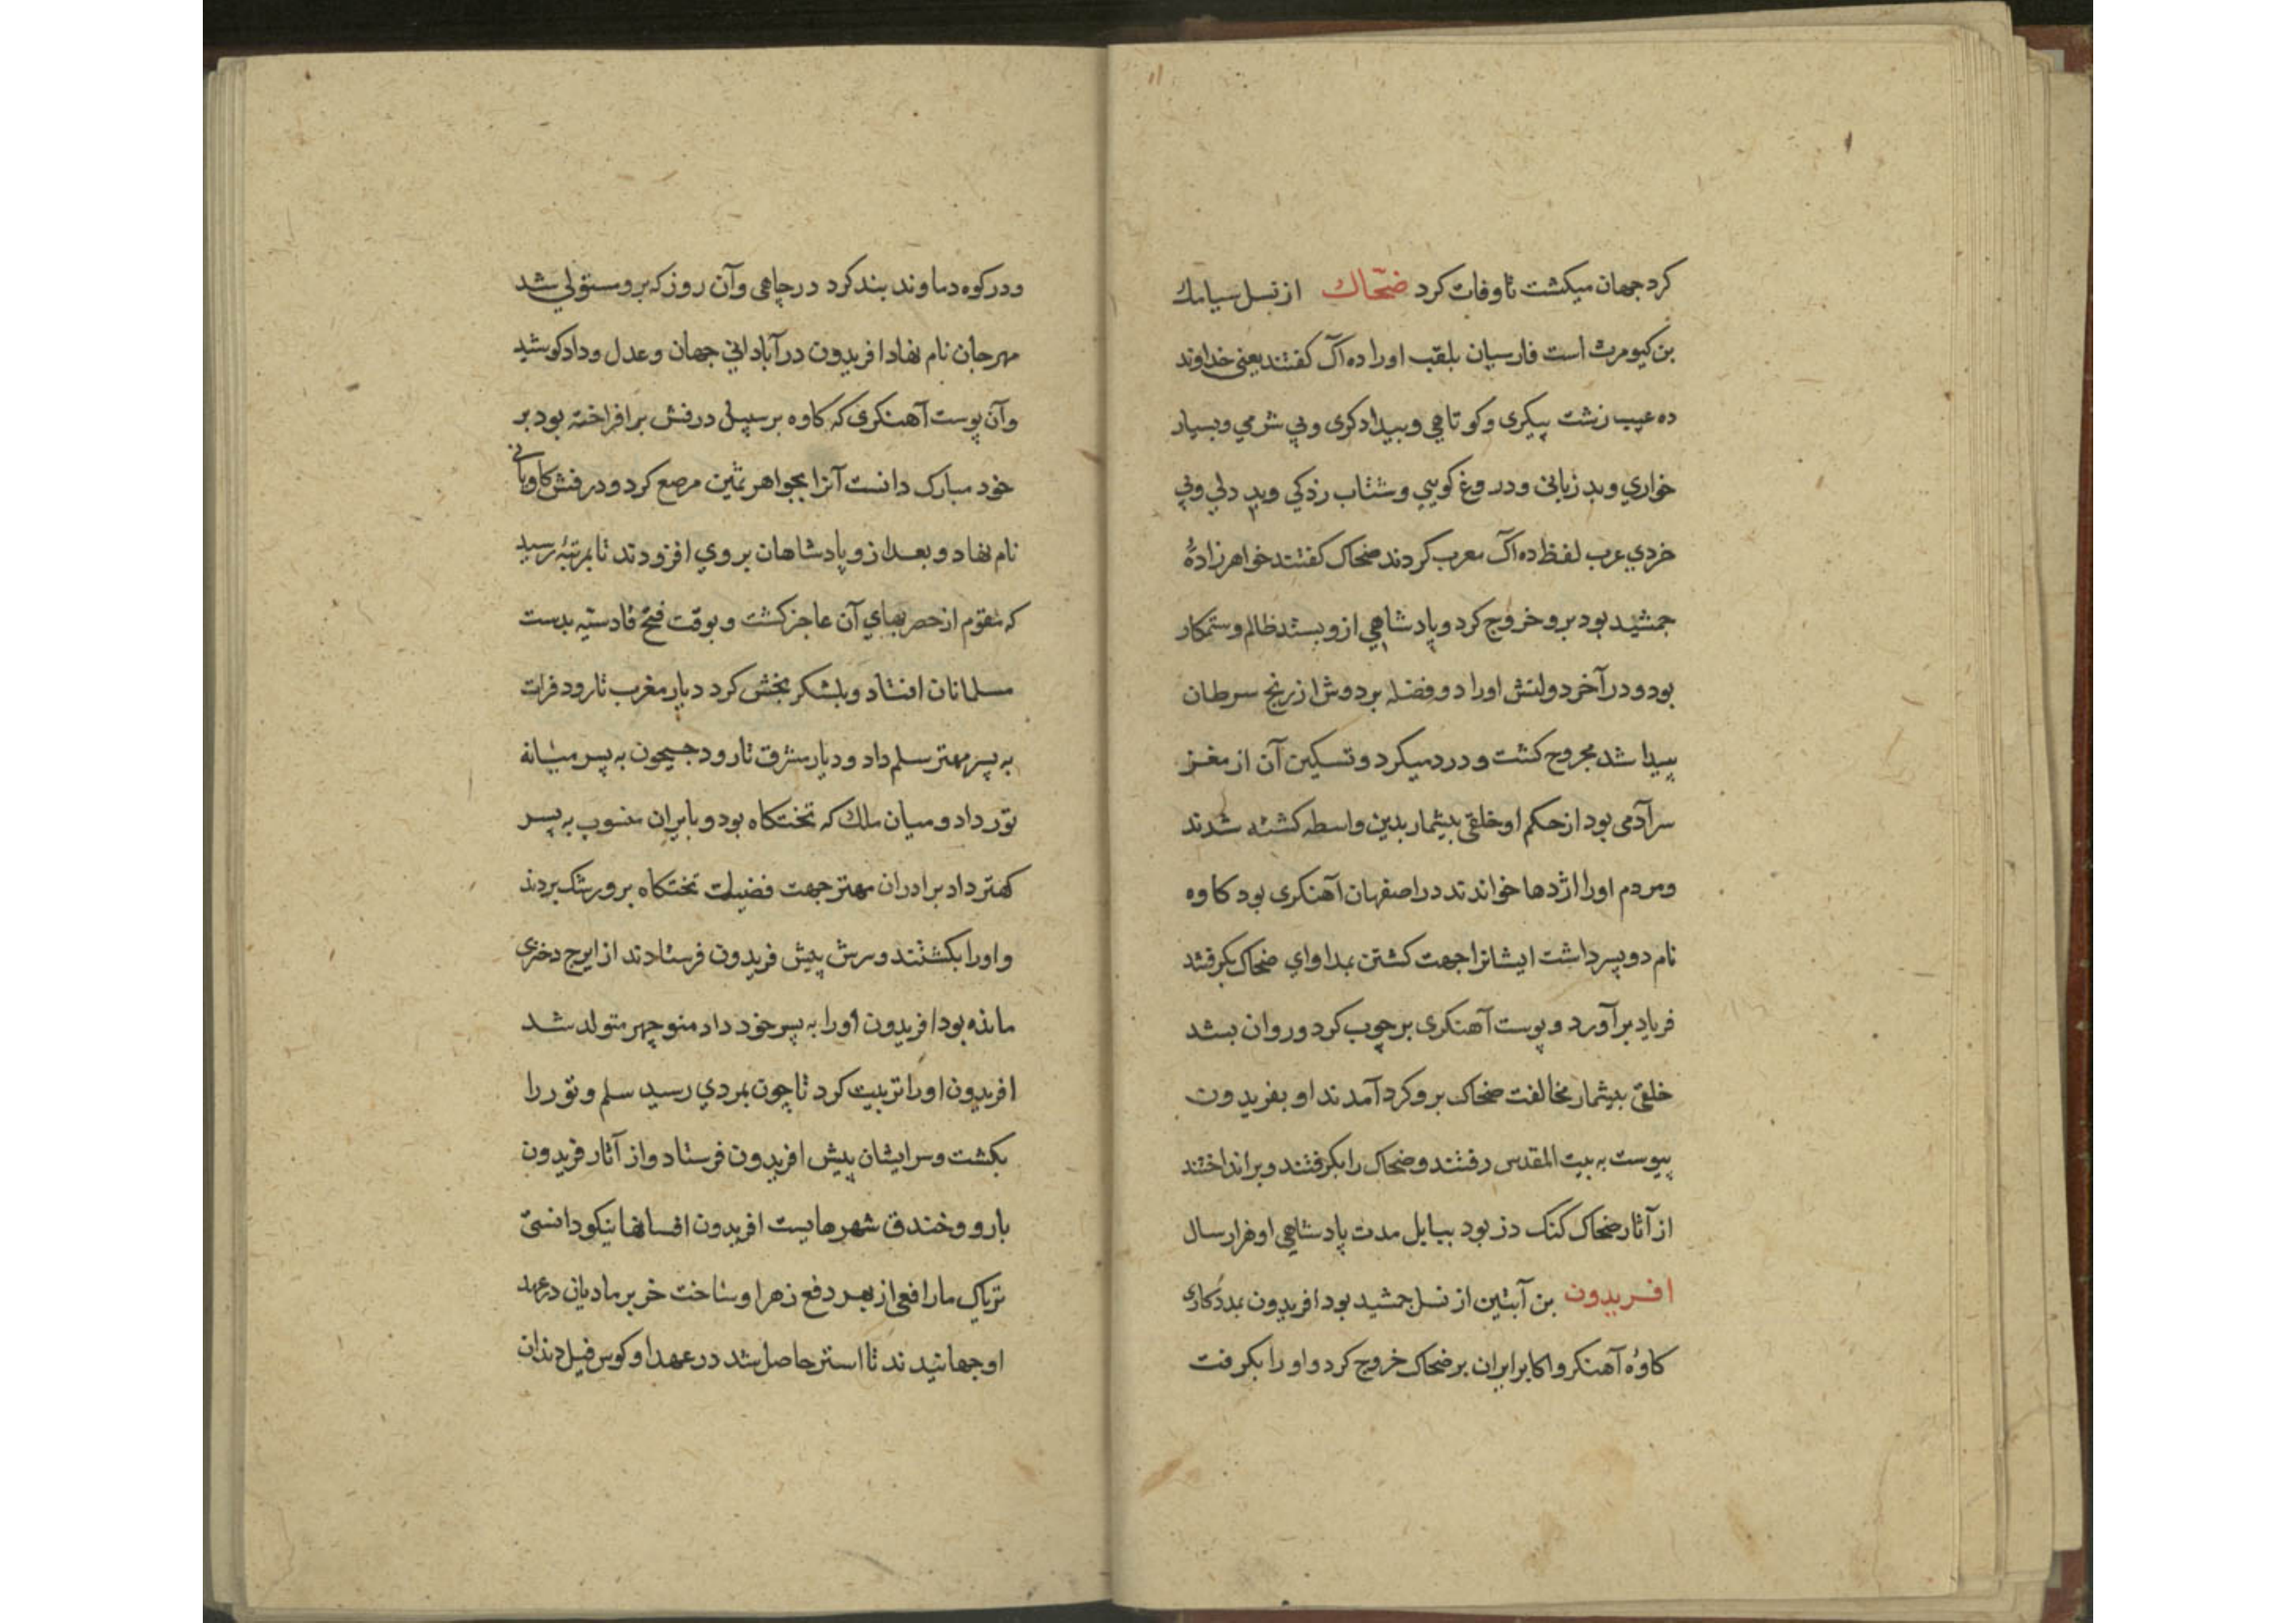 ۱۱
کرد جهان میکشت تا وفات کرد ضحّاك از نسل سیامك
بن کیومرث است فارسیان بلقب اورا ده آک کفتند یعنی خداوند
ده عیب زشت پیکری وکوتاهی وبیدادکری وبي شرمي وبسیار
خواري وبد زبانی ودروغ کویي وشتاب زدکي وبد دلي وبي
خردي عرب لفظ ده آک معرب کردند ضحاک کفتند خواهرزادهٔ
جمشید بود برو خروج کرد وپادشاهي ازو بستد ظالم وستمکار
بود ودر آخر دولتش اورا دو فضله بر دوش از رنج سرطان
پیدا شد مجروح کشت ودرد میکرد وتسکین آن از مغز
سر آدمی بود از حکم او خلقی بیشمار بدین واسطه کشته شدند
ومردم اورا اژدها خواندند در اصفهان آهنکری بود کاوه
نام دو پسر داشت ایشانرا جهت کشتن بمداوای ضحاک بکرفتند
فریاد برآورد وپوست آهنکری بر چوب کرد وروان بشد
خلقی بیشمار مخالفت ضحاک برو کرد آمدند او بفریدون
پیوست به بیت المقدس رفتند وضحاک را بکرفتند وبرانداختند
از آثار ضحاک کنک دز بود ببابل مدت پادشاهی او هزار سال
افریدون بن آبتین از نسل جمشید بود افریدون بمددکاری
کاوهٔ آهنکر واکابر ایران بر ضحاک خروج کرد واورا بکرفت
ودر کوه دماوند بند کرد در چاهی وآن روز که برو مستولي شد
مهرجان نام نهاد افریدون در آبادانی جهان وعدل وداد کوشید
وآن پوست آهنکری که کاوه بر سبیل درفش برافراخته بود بر
خود مبارک دانست آنرا بجواهر ثمین مرصع کرد ودرفش کاویانی
نام نهاد وبعد ازو پادشاهان بروي افزودند تا بمرتبهٔ رسید
که مقوم از حصر بهاي آن عاجز کشت وبوقت فتح قادسیّه بدست
مسلمانان افتاد وبلشکر بخش کرد دیار مغرب تا رود فرات
به پسر مهتر سلم داد ودیار مشرق تا رود جیحون به پسر میانه
تور داد ومیان ملك که تختکاه بود وبایران منسوب به پسر
کهتر داد برادران مهتر جهت فضیلت تختکاه برو رشک بردند
واورا بکشتند وسرش پیش فریدون فرستادند از ایرج دختری
مانده بود افریدون اورا به پسر خود داد منوچهر متولد شد
افریدون اورا تربیت کرد تا چون بمردي رسید سلم وتور را
بکشت وسر ایشان پیش افریدون فرستاد واز آثار فریدون
بارو وخندق شهرهاست افریدون افسانها نیکو دانستی
تریاک مار افعی از بهر دفع زهر او ساخت خر بر مادیان در عهد
او جهانیدند تا استر حاصل شد در عهد او کوس فیل دندان